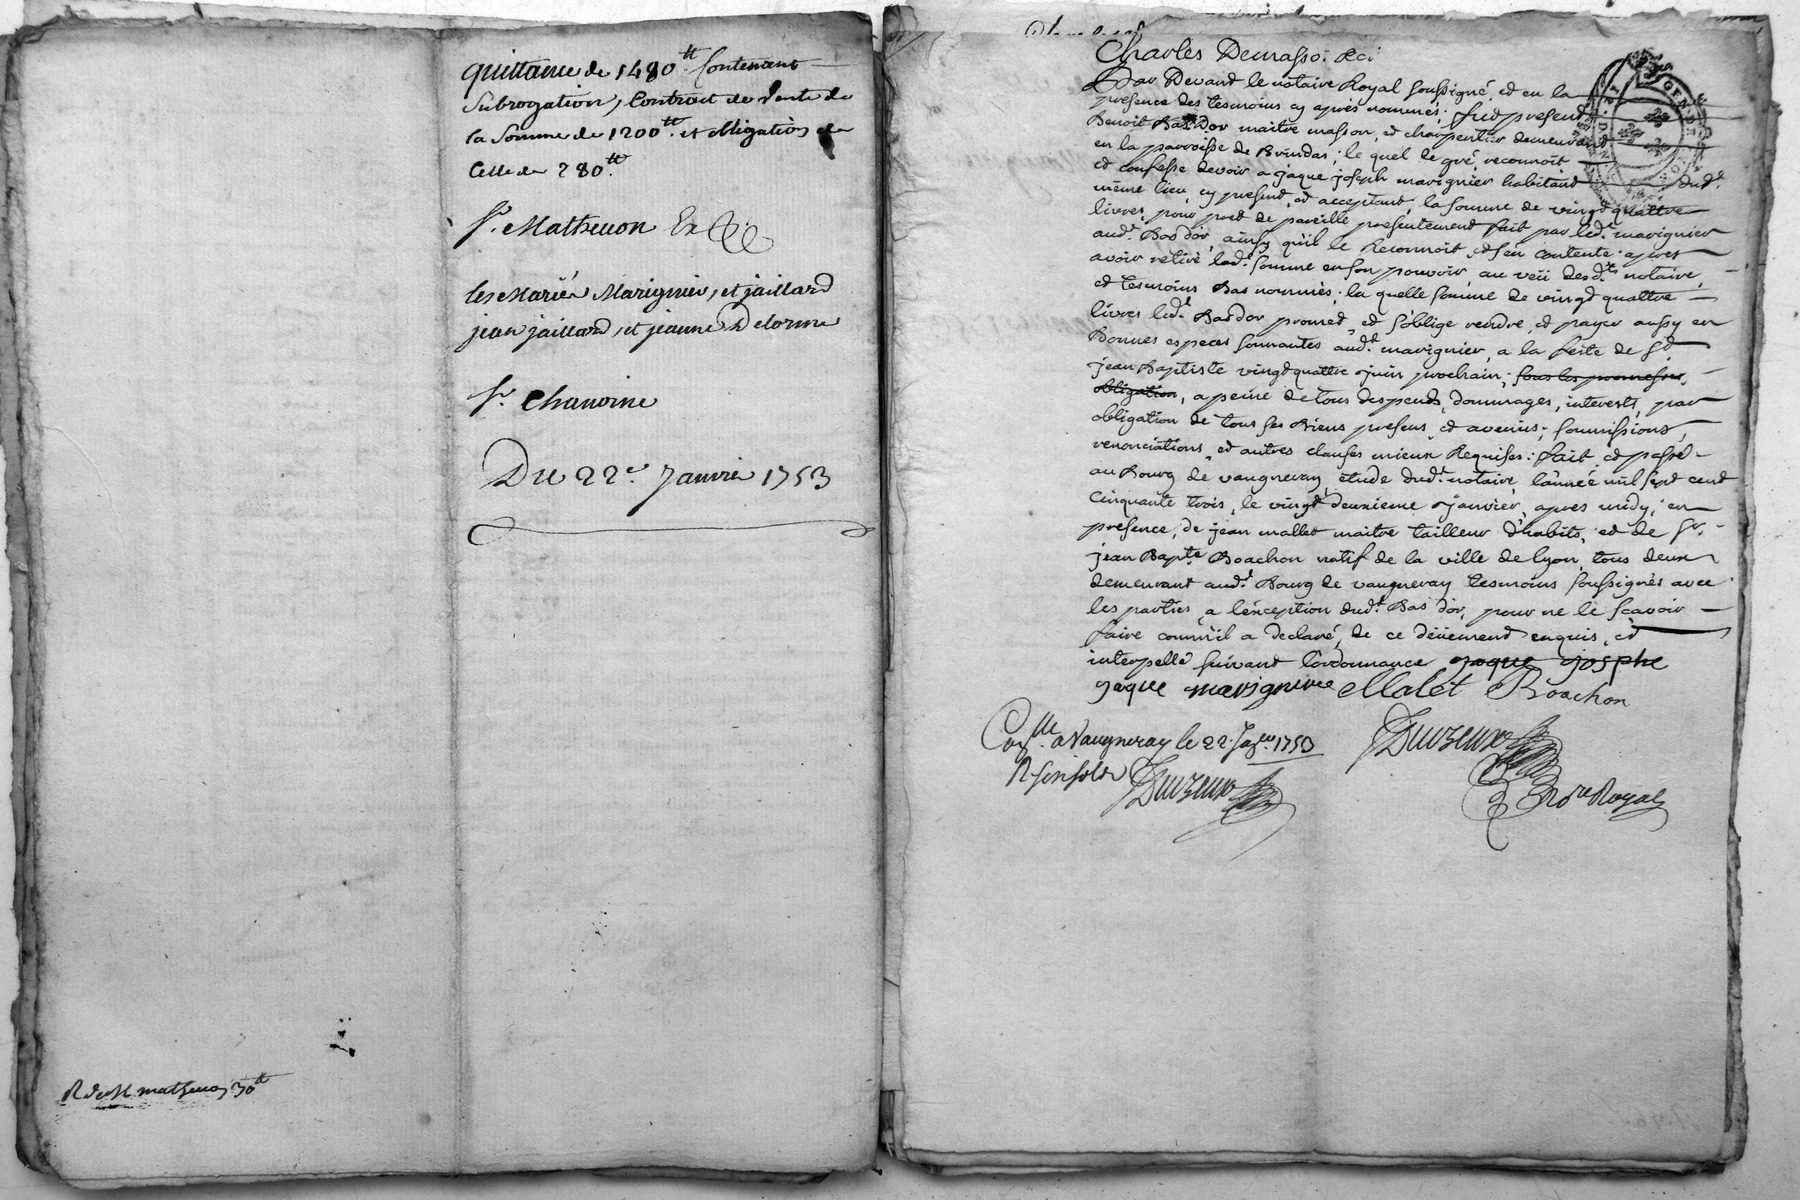 quittance de 1480ᵗᵗ. Contenant
Subrogation, Contract de vente de
la Somme de 1200ᵗᵗ. et obligation de
Celle de 280ᵗᵗ.
Sʳ. Matheuon
les Mariés Marignier, et jaillard
jean jaillard, et jeanne Delorme
Sʳ. Chanoine
Du 22ᵉ. Janvier 1753
R de M. matheuon 30ᵗᵗ
Charles
Par Devant le notaire Royal soussigné, et en la
presence des tesmoins cy apres nommés: fut present
Benoit Bas'Dor maitre masson, et charpentier demeurant
en la parroisse de Brindas; le quel de gré, reconnoit
et confesse devoir a jaque joseph marignier habitant dudᵗ.
même lieu, cy present, et acceptant, la somme de vingt quattre
livres, pour pret de pareille presentement fait par ledᵗ. marignier
audᵗ. Bas'dor, ainsy qu'il le Reconnoit, et s'en contente apres
avoir retiré ladᵗ. somme en son pouvoir, au veü desdᵗˢ. notaire,
et tesmoins Bas nommés; la quelle somme de vingt quattre
livres ledᵗ. Bas'dor promet, et s'oblige rendre, et payer aussy en
Bonnes especes sonnantes audᵗ. marignier, a la feste de Sᵗ.
jean Baptiste vingt quattre juin prochain; sous les promesses,
obligation, a peine de tous despends, dommages, interests, par
obligation de tous ses Biens presens, et avenirs; soumissions,
renonciations, et autres clauses mieux Requises: fait et passé
au Bourg de vaugneray, étude dudᵗ. notaire, l'année mil sept cent
cinquante trois, le vingt deuxieme janvier, apres midy; en
presence, de jean mallet maitre tailleur d'habits, et de Sʳ.
jean Bapᵗᵉ Boachon natif de la ville de lyon, tous deux
demeurant audᵗ. Bourg de vaugneray tesmoins soussignés avec
les parties, a l'exception dudᵗ. Bas'dor, pour ne le scavoir
faire comm'il a declaré, de ce düement enquis, et
interpellé suivant l'ordonnance jaque josphe
jaque marignier Malet Boachon
Conᵗˡᵉ. a Vaugneray le 22. Janᵉʳ. 1753
R six sols Duvzeux
Duvzeux
Nʳᵉ Royal